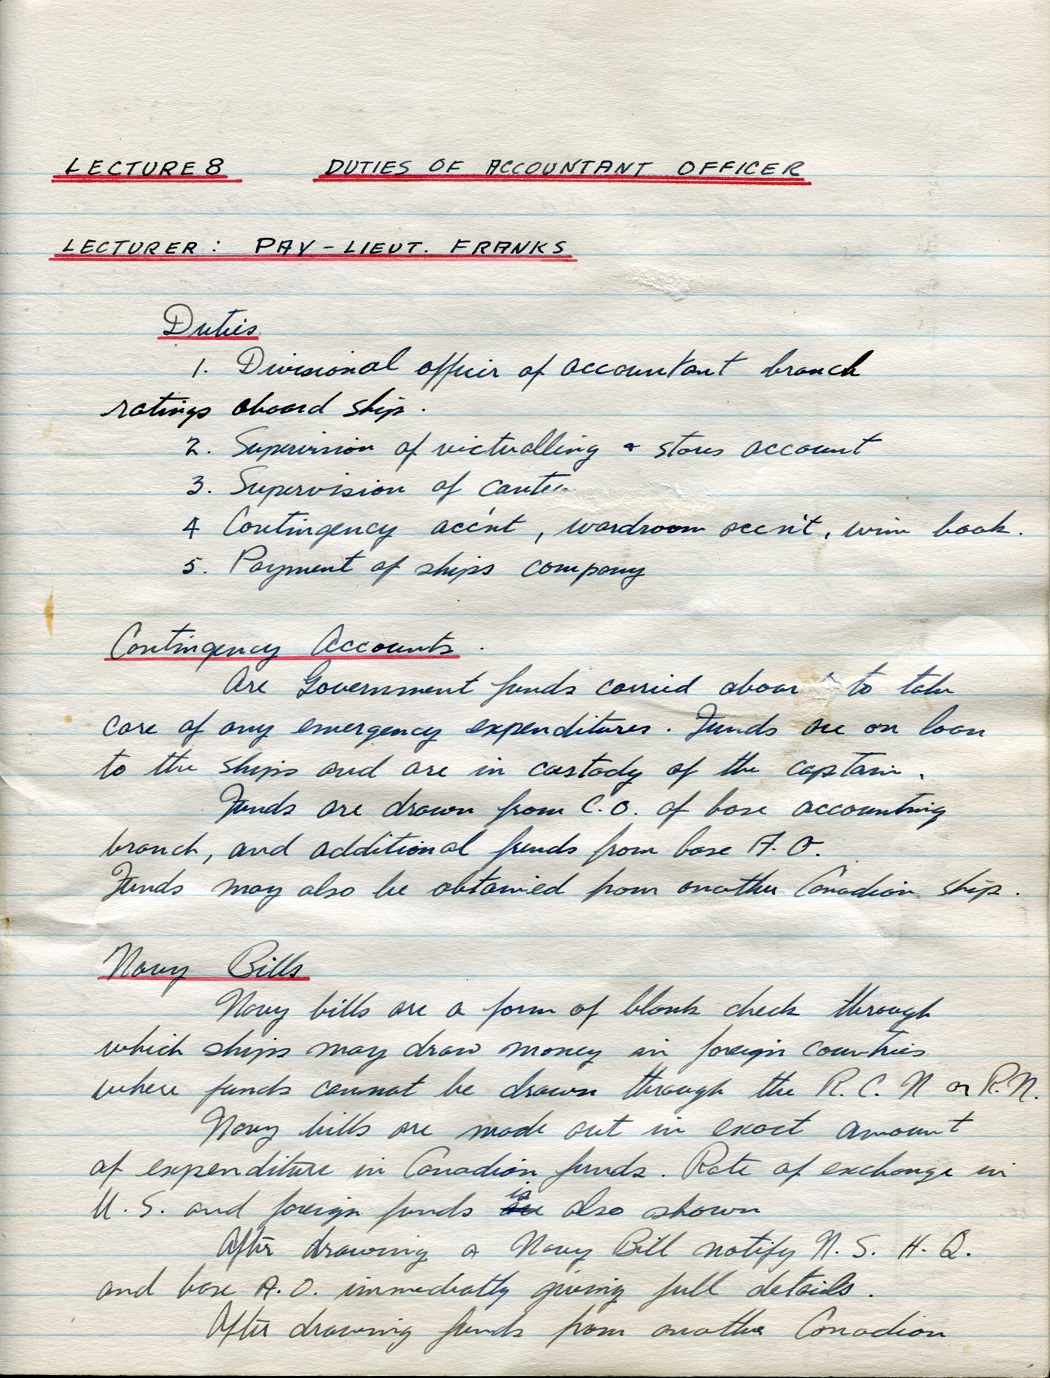 LECTURE 8 DUTIES OF ACCOUNTANT OFFICER
LECTURER: PAY-LIEUT. FRANKS
Duties
1. Divisional officer of accountant branch
ratings aboard ship.
2. Supervision of victualling & stores account
3. Supervision of cantee
4 Contingency acc'nt, wardroom acc'nt, wine book.
5. Payment of ships company
Contingency Accounts.
Are Government funds carried aboar to take
care of any emergency expenditures. Funds are on loan
to the ships and are in custody of the captain.
Funds are drawn from C.O. of base accounting
branch, and additional funds from base A.O.
Funds may also be obtained from another Canadian ship.
Navy Bills
Navy bills are a form of blank check through
which ships may draw money in foreign countries
where funds cannot be drawn through the R.C.N or R.N.
Navy bills are made out in exact amount
of expenditure in Canadian funds. Rate of exchange in
U.S. and foreign funds is also shown
After drawing a Navy Bill notify N.S.H.Q.
and base A.O. immediatly giving full details.
After drawing funds from another Canadian